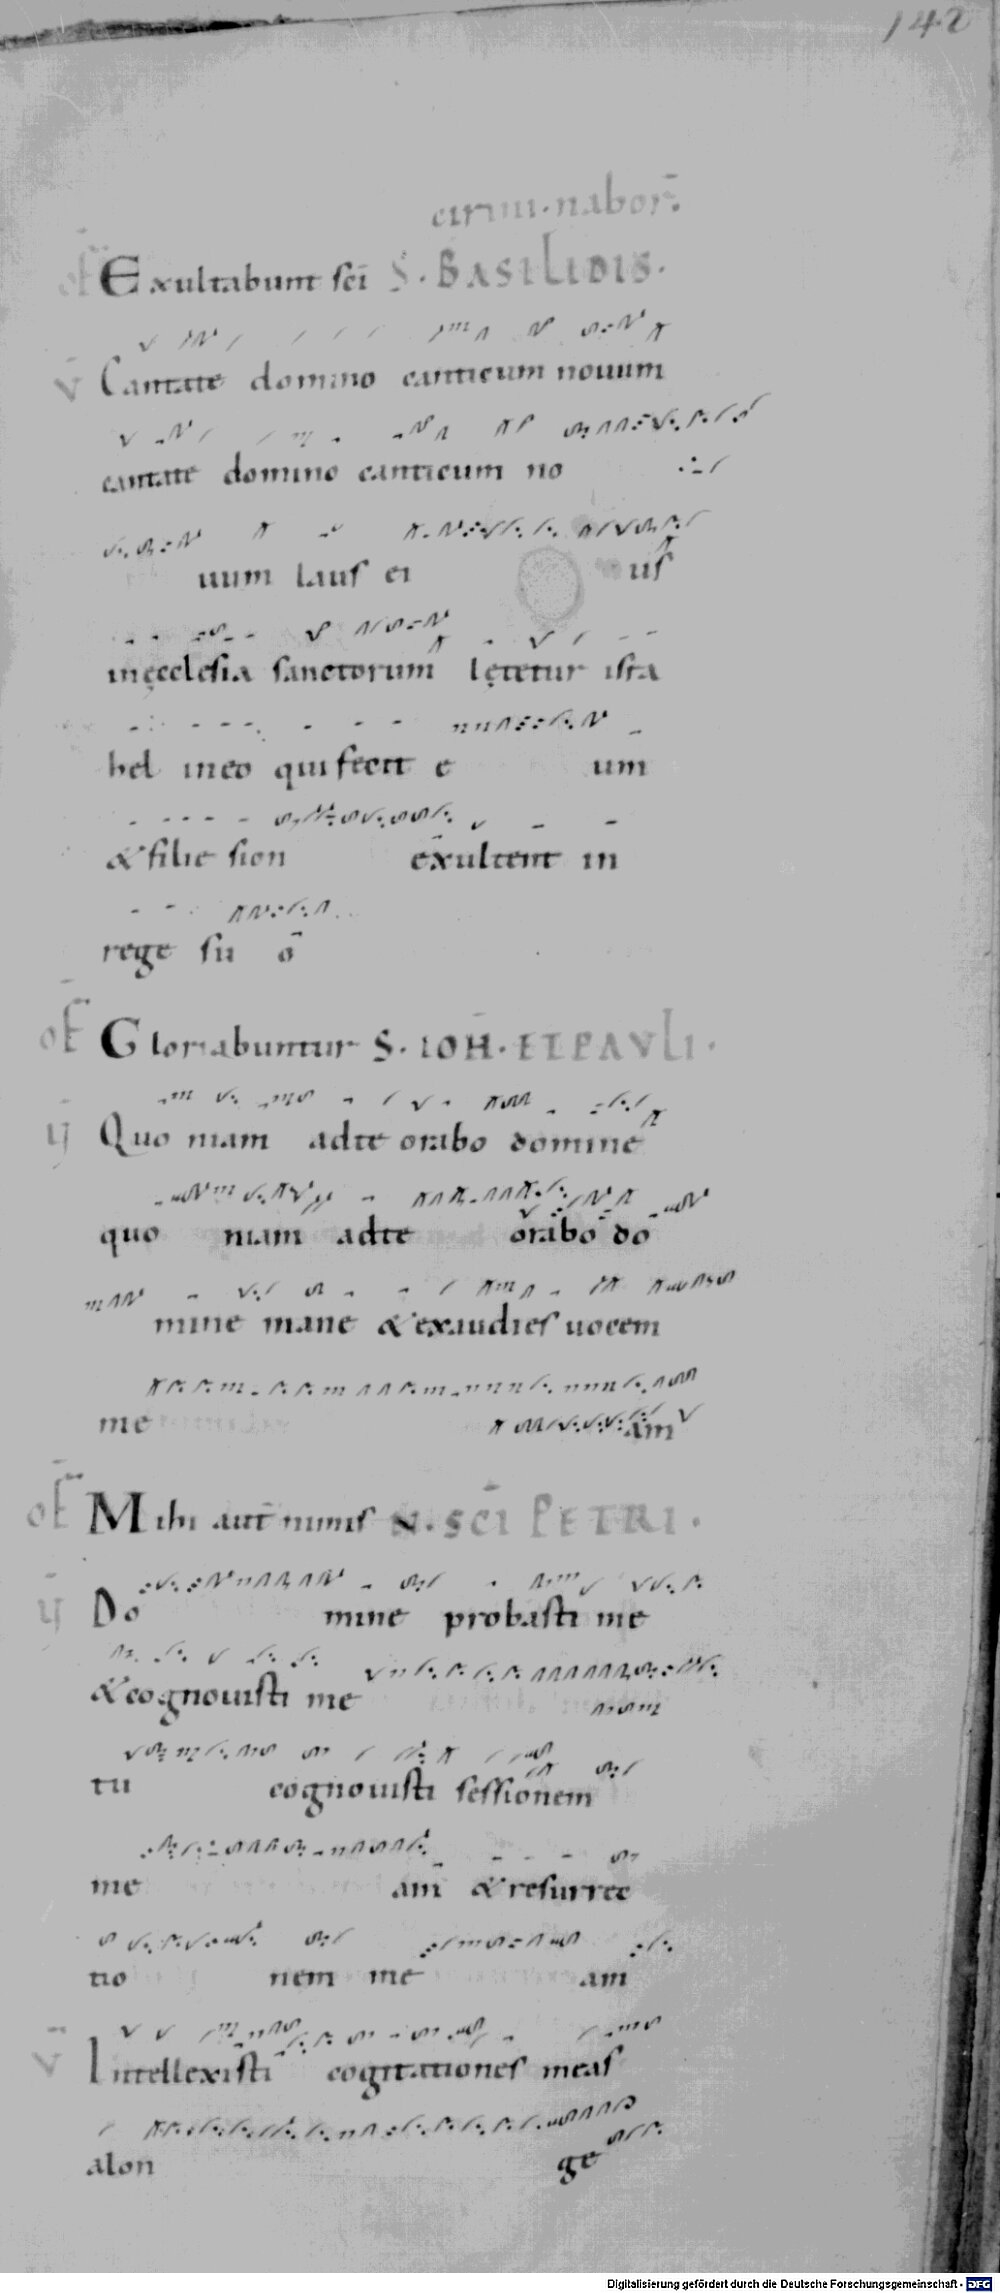 142
cirini. nabor̄.
of̄ Exultabunt sc̄i S. BASILIDIS.
v̄ Cantate domino canticum nouum
cantate domino canticum no
uum laus ei us
inęcclesia sanctorum lętetur isra
hel ineo qui fecit e um
& filie sion exultent in
rege su ō
of̄ Gloriabuntur S. IOH̄. ETPAVLI.
v̄ Quo niam adte orabo domine
quo niam adte orabo do
mine mane & exaudies uocem
me am
of̄ Mihi aut̄ nimis N. SC̄I PETRI.
v̄ Do mine probasti me
& cognouisti me
tu cognouisti sessionem
me am & resurrec
tio nem me am
v̄ Intellexisti cogitationes meas
alon ge
Digitalisierung gefördert durch die Deutsche Forschungsgemeinschaft - DFG